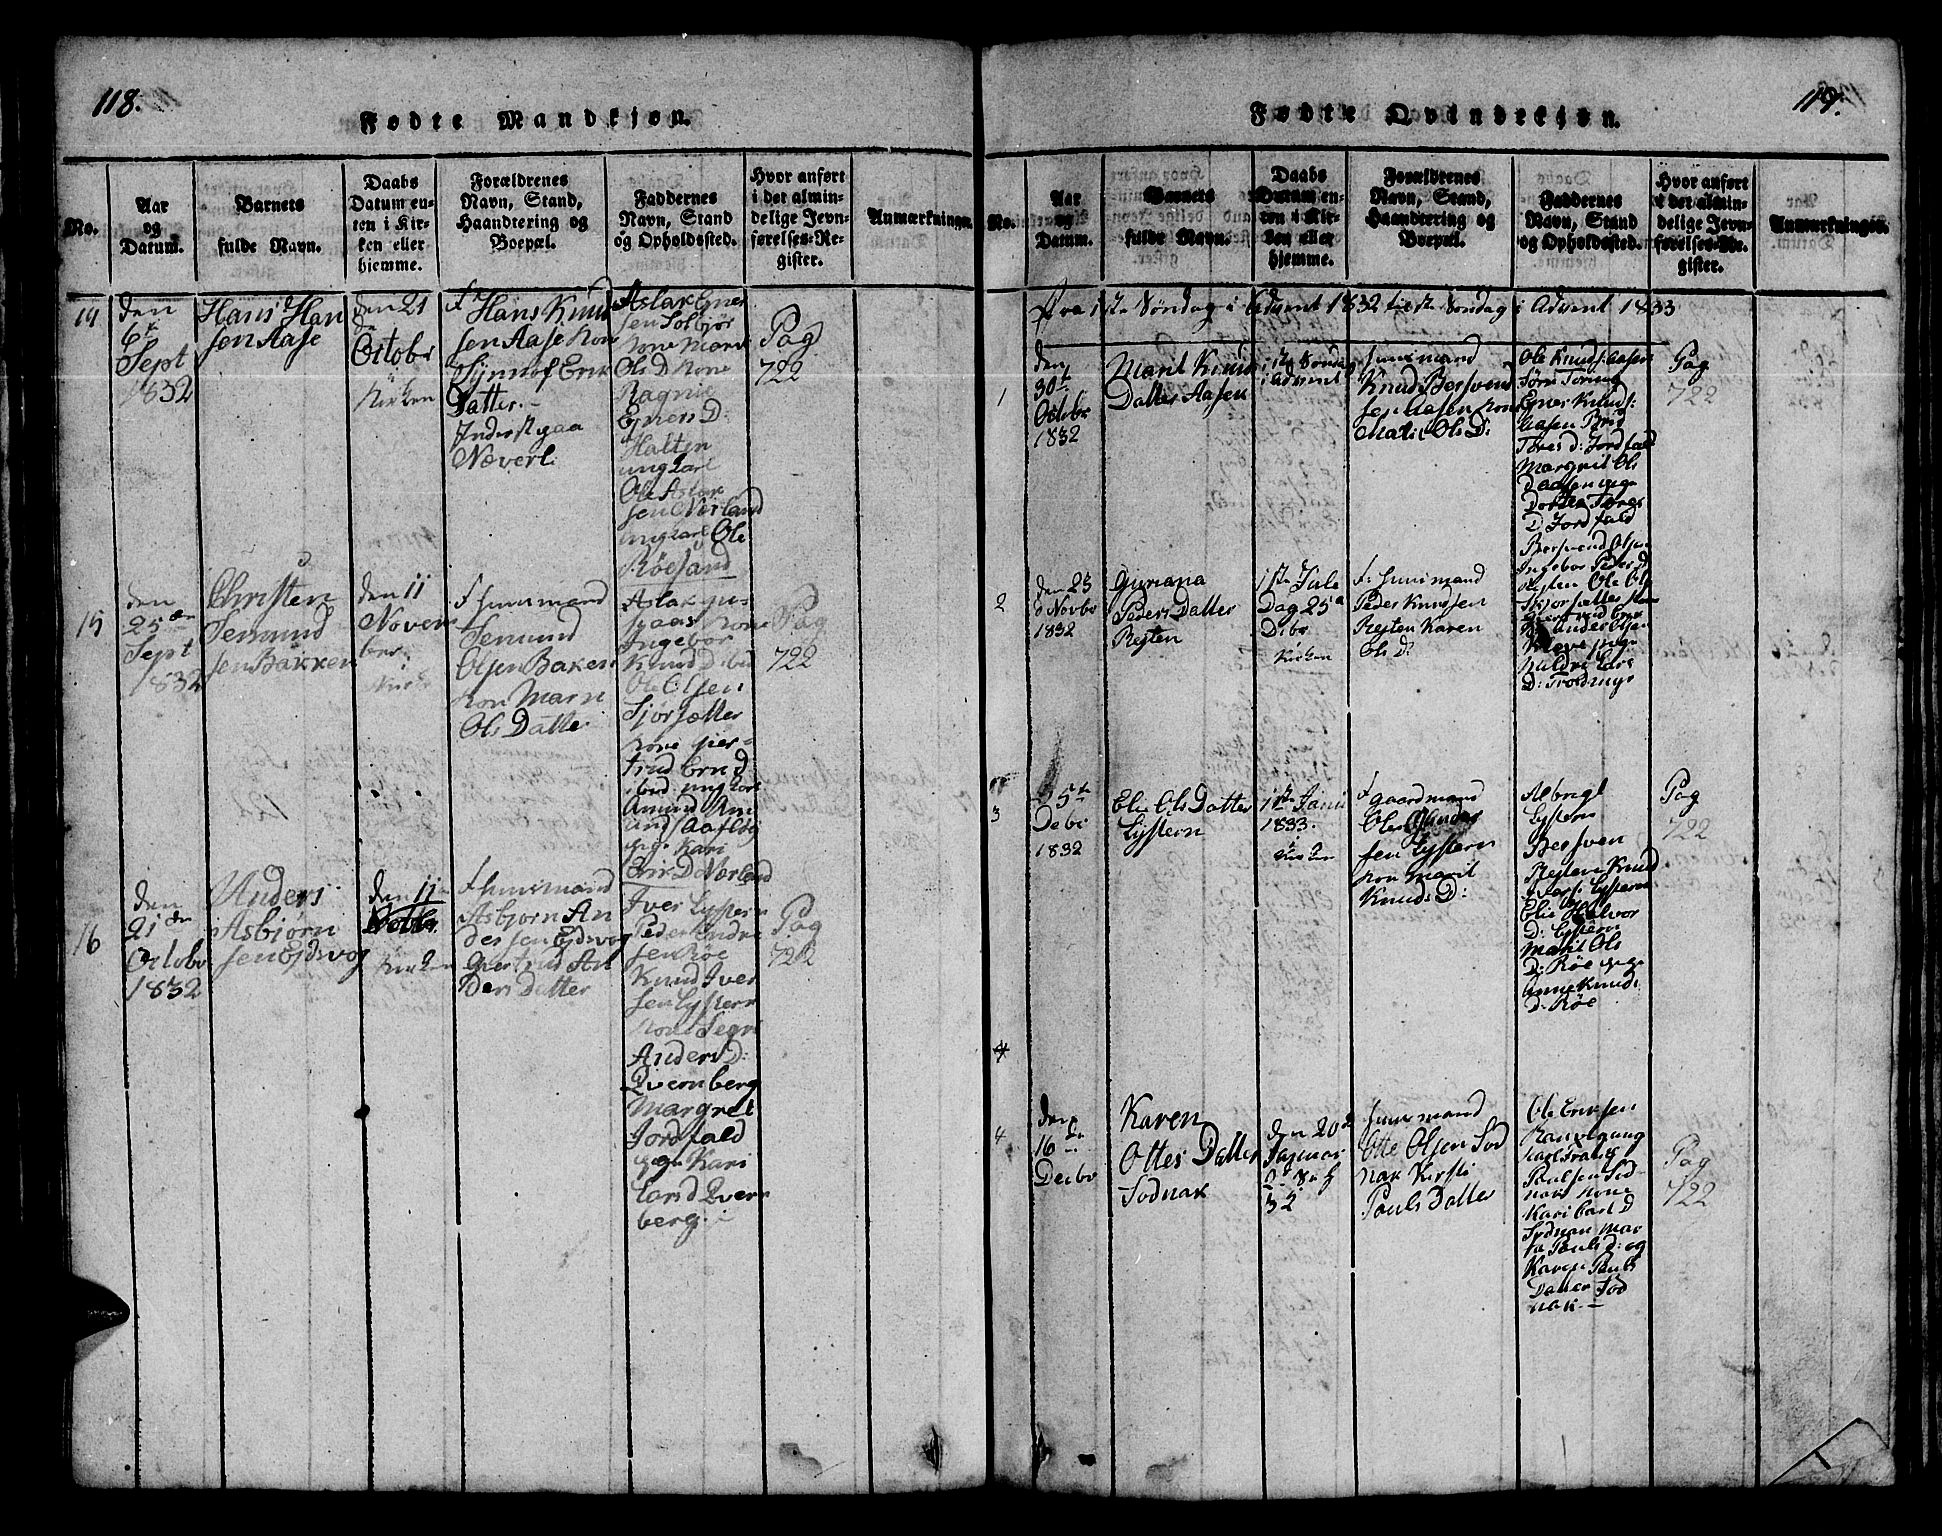 118.
Fødte Mandkjøn.
No.
Aar
og
Datum.
Barnets
fulde Navn.
Daabs
Datum en-
ten i Kir-
ken eller
hjemme.
Forældrenes
Navn, Stand,
Haandtering og
Boepæl.
Faddernes
Navn, Stand
og Opholdssted.
Hvor anført
i det almin-
delige Jevn-
førelses-Re-
gister.
Anmærkninger.
14
den
6te
Sept
1832
Hans Han
sen Aase
den 21
Octobr
Kirken
F Hans Knud
sen Aase Kone
Synnøf Erik
Datter.-
Inderst paa
Næverl
Aslak Ener
sen Solbjør
Kone Marit
Ols D Kone
Ragnil
Eners D:
Halten
ungkarl
Ole Aslak
sen Norland
ungkarl Ole
Røesand
Pag
722
15
den
25de
Sept
1832
Christen
Semund
sen Bakken
den 11
Novem
ber
Kirke
F Huusmand
Semund
Olsen Baken
Kone Marn
Ols Datte
Aslak
Kone
Ingebor
Knud D ibid
Ole Olsen
Sjørsætter
Kone Gier-
trud
ibid ungkarl
Amund Am
und
pige Kari
Erik D Norland
Pag
722
16
den
21de
Octobr
1832
Anders
Asbjørn
sen Ejdsvog
den 11
Kirken
F Huusmand
Asbjørn An
dersen Ejdsvog
Giertrud An
Ders Datter
Iver Lystern
Peder Andre
sen Røe
Knud Iver
sen Lystern
Kone Segn
Anders D:
Qvernberg
Margret
Jordfald
pige Kari
Qvern
berg.-
Pag
722
119.
Fødte Qvindekjøn.
No.
Aar
og
Datum.
Barnets
fulde Navn.
Daabs
Datum en-
ten i Kir-
ken eller
hjemme.
Forældrenes
Navn, Stand,
Haandtering og
Boepæl.
Faddernes
Navn, Stand
og Opholdssted.
Hvor anført
i det almin-
delige Jevn-
førelses-Re-
gister.
Anmærkninger.
Fra 1ste Søndag i Advent 1832 til 1ste Søndag i Advent 1833
1
den
30te
Octobr
1832
Marit Knud
Datter Aasen
1ste Søndag
i Advent
Huusmand
Knud Bersvend
sen Aasen Kone
Marit Ols D:
Ole Knuds: Aasen
Søri Toring
Ener Knuds:
Aasen Brit
Tores D: Jordfald
Margrit Ols
D Aasen pige
Dorte Tores
D Jordfald
Bersvend Olsen
Pag
722
2
den 25
d Novbr
1832
Guriana
Peders Datter
Rejten
1ste Jule
Dag 25de
Debr
Kirken
F: Huusmand
Peder Knudsen
Rejten Karen
Ols D:
Ingebor Peders D
Rejten Ole Ols
3
5te
Debr
1832
Eli Ols Datter
Lystern
1ste Janu
1833.
Kirken
F gaardmand
Ole
sen Lystern
Kone Marit
Knuds D:
Albregt
Lystern
Bersven
Rejten Knud
Ivers: Lystern
Elie Halvor
D: Lystern
Marit Ols
D: Røe pige
Anne Knuds
D: Røe
Pag
722
4
4
den
16de
Decbr
Karen
Ottes Datter
Sodnak
den 20de
Huusmand
Otte Olsen Sod
nak Kirsti
Pouls Datter
Ole Eriksen
Poulsen Sod-
nak Kone
Kari Carl D
Sodnak Mar
ta Pouls D: og
Karen Pouls
Datter Sod
nak.-
Pag
722